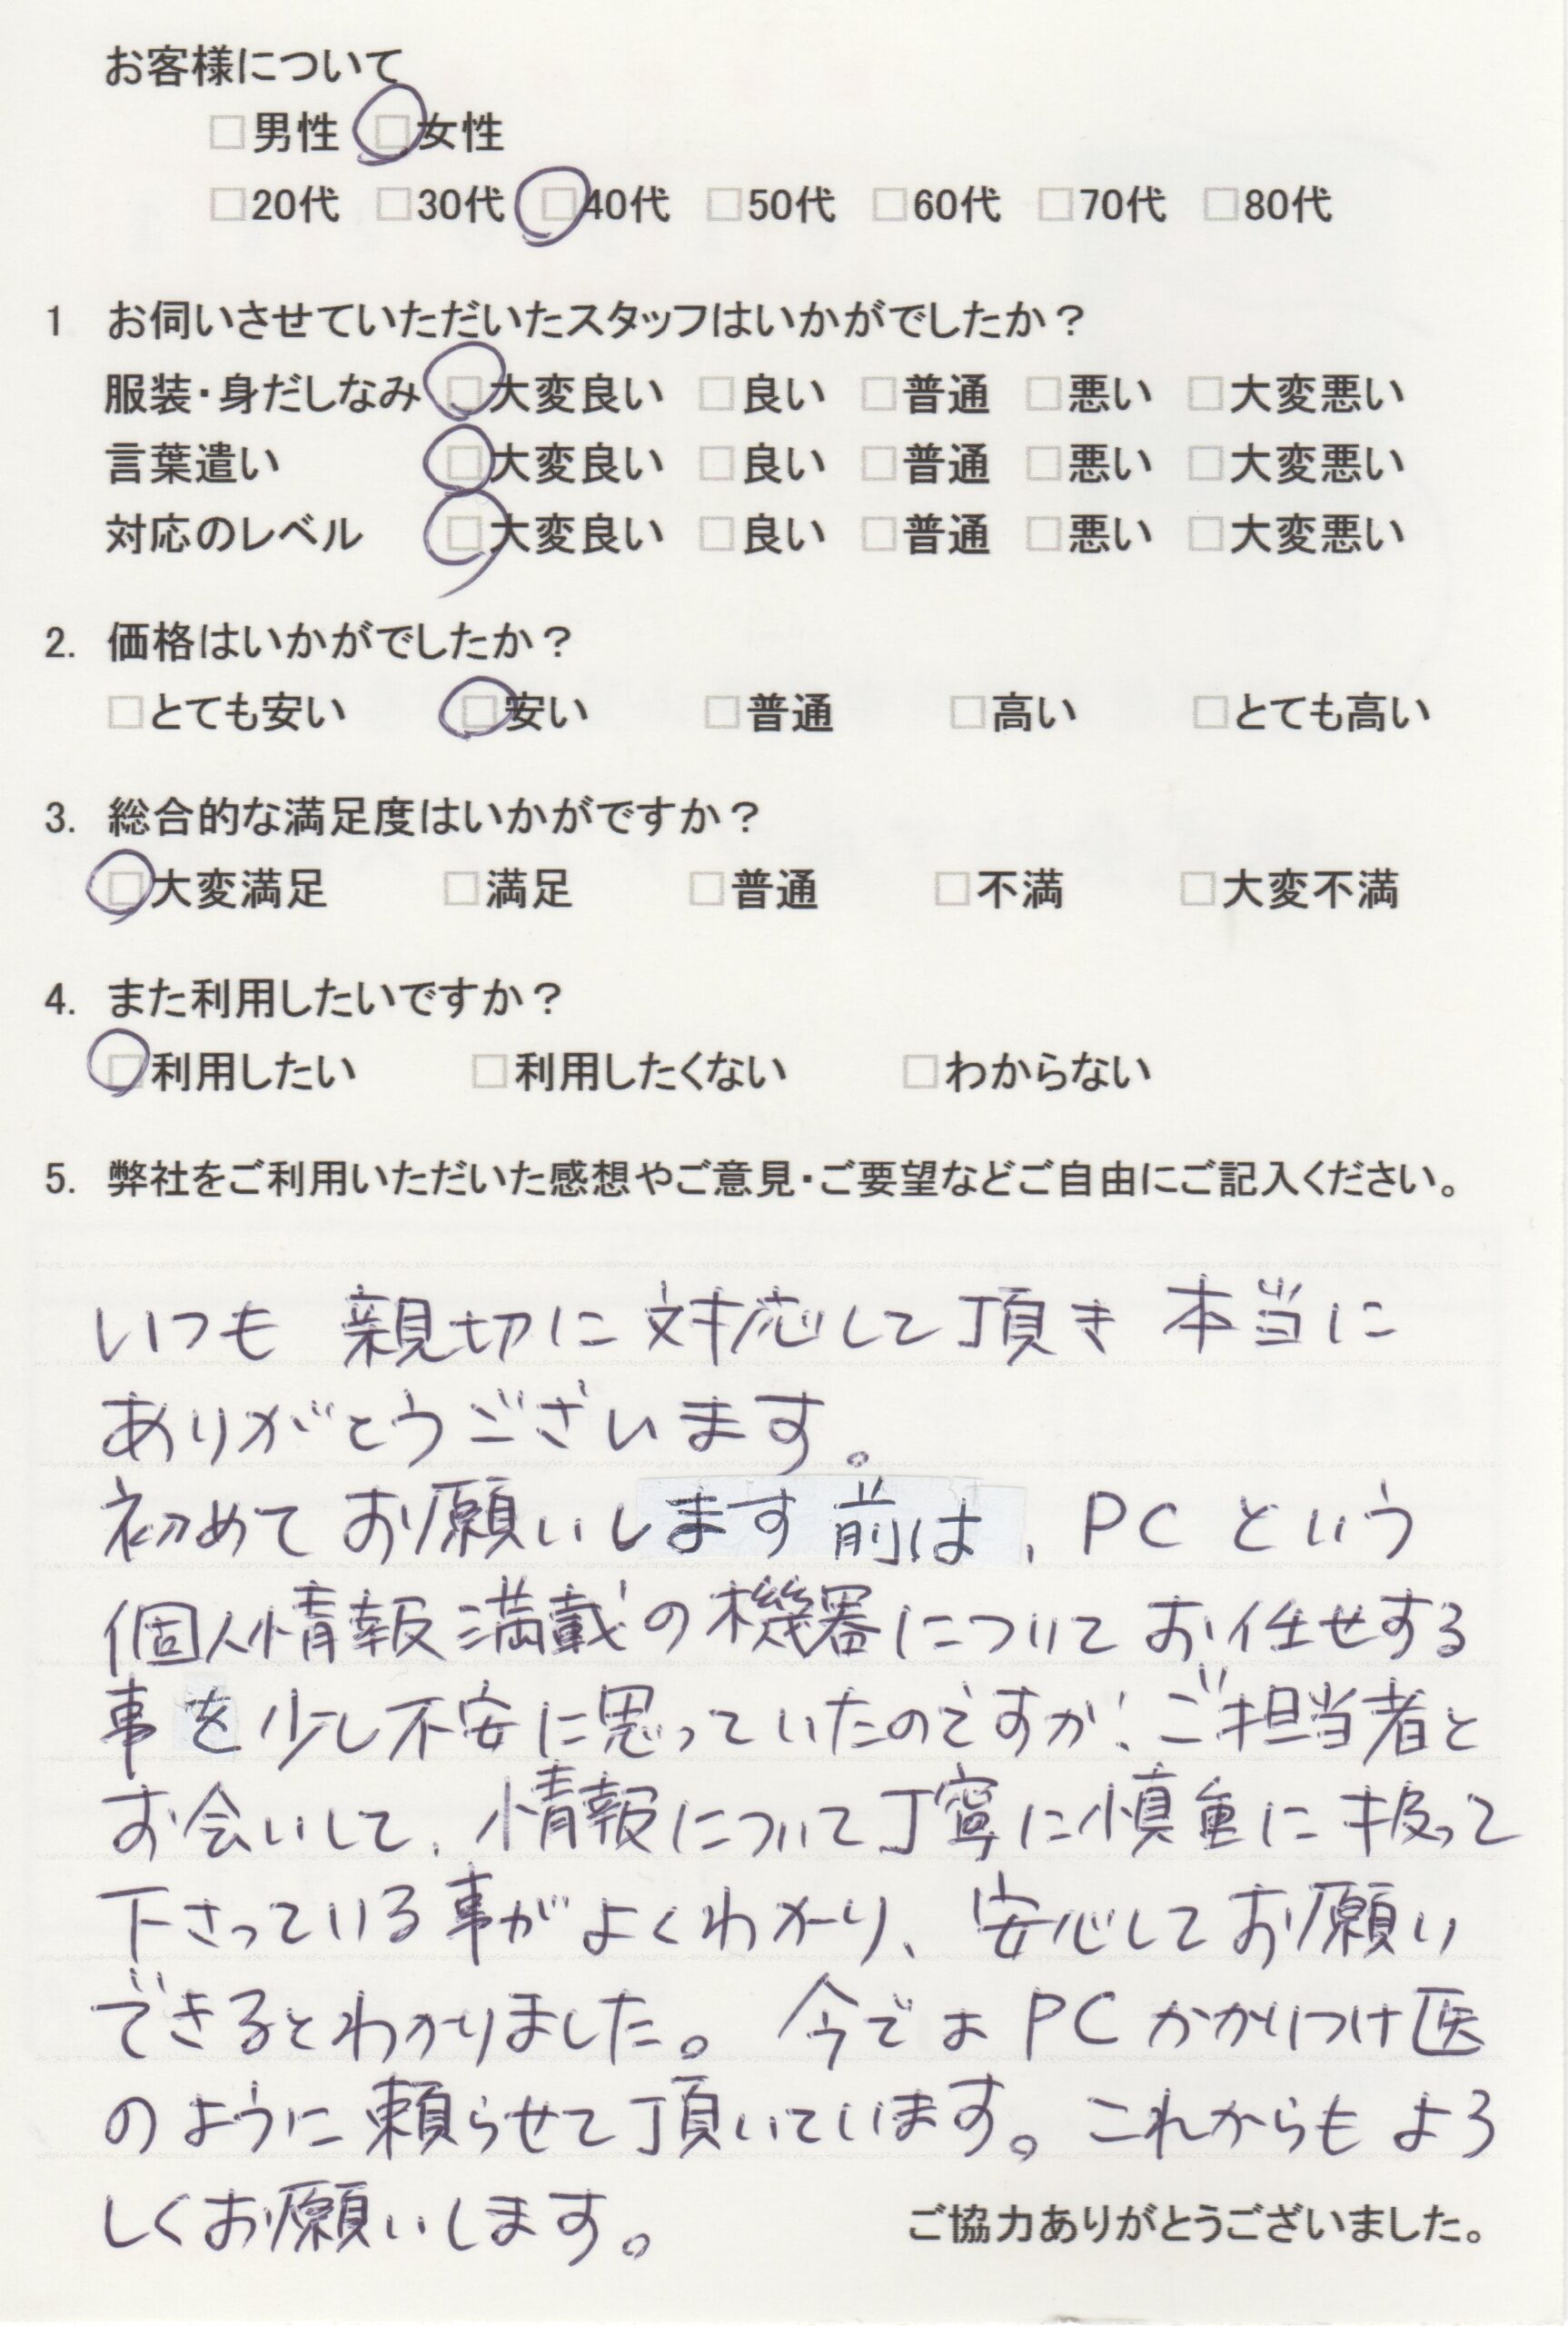 お客様について
□男性 □女性
□20代 □30代 □40代 □50代 □60代 □70代 □80代
1 お伺いさせていただいたスタッフはいかがでしたか？
服装・身だしなみ □大変良い □良い □普通 □悪い □大変悪い
言葉遣い □大変良い □良い □普通 □悪い □大変悪い
対応のレベル □大変良い □良い □普通 □悪い □大変悪い
2. 価格はいかがでしたか？
□とても安い □安い □普通 □高い □とても高い
3. 総合的な満足度はいかがですか？
□大変満足 □満足 □普通 □不満 □大変不満
4. また利用したいですか？
□利用したい □利用したくない □わからない
5. 弊社をご利用いただいた感想やご意見・ご要望などご自由にご記入ください。
いつも 親切に 対応して頂き 本当に
ありがとうございます。
初めて お願いします前は、PC という
個人情報満載の機器について お任せする
事を少し不安に思っていたのですが、ご担当者と
お会いして、情報について丁寧に慎重に扱って
下さっている事がよくわかり、安心してお願い
できるとわかりました。今では PC かかりつけ医
のように頼らせて頂いています。これからも よろ
しくお願いします。
ご協力ありがとうございました。